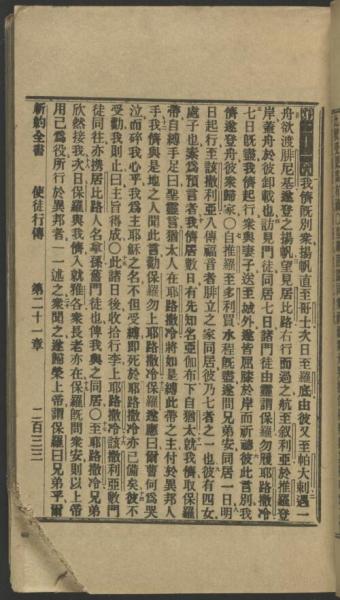 第二十一章我儕既別衆揚帆直至哥士次日至羅底由彼又至帕大喇遇一
舟欲渡腓尼基遂登之揚帆望見居比路右行而過之航至叙利亞於推羅登
岸蓋舟於彼卸載也訪見門徒同居七日諸門徒由靈謂保羅勿履耶路撒冷
七日既盡我儕起行衆與妻子送至城外遂皆屈膝於岸而祈禱彼此言別我
儕遂登舟彼衆歸家〇自推羅至多利買水程既盡遂問兄弟安同居一日明
日起行至該撒利亞入傳福音者腓立之家同居彼乃七者之一也彼有四女
處子也素爲預言者我儕居數日有先知名亞伽布下自猶太就我儕取保羅
帶自縛手足曰聖靈言猶太人在耶路撒冷將如是縛此帶之主付於異邦人
手我儕與是地之人聞此言勸保羅勿上耶路撒冷保羅遂應曰爾曹何爲哭
泣而碎我心乎我爲主耶穌之名不但受縛即死於耶路撒冷亦已備矣彼不
受勸我則止曰主旨得成〇此諸日後收拾行李上耶路撒冷該撒利亞數門
徒同往亦攜居比路人名拿孫舊門徒也俾我與之同居〇至耶路撒冷兄弟
欣然接我次日保羅與我儕入就雅各衆長老亦在保羅既問衆安則以上帝
用己爲役所行於異邦者一一述之衆聞之遂歸榮上帝謂保羅曰兄弟乎爾
新約全書 使徒行傳 第二十一章 二百三三